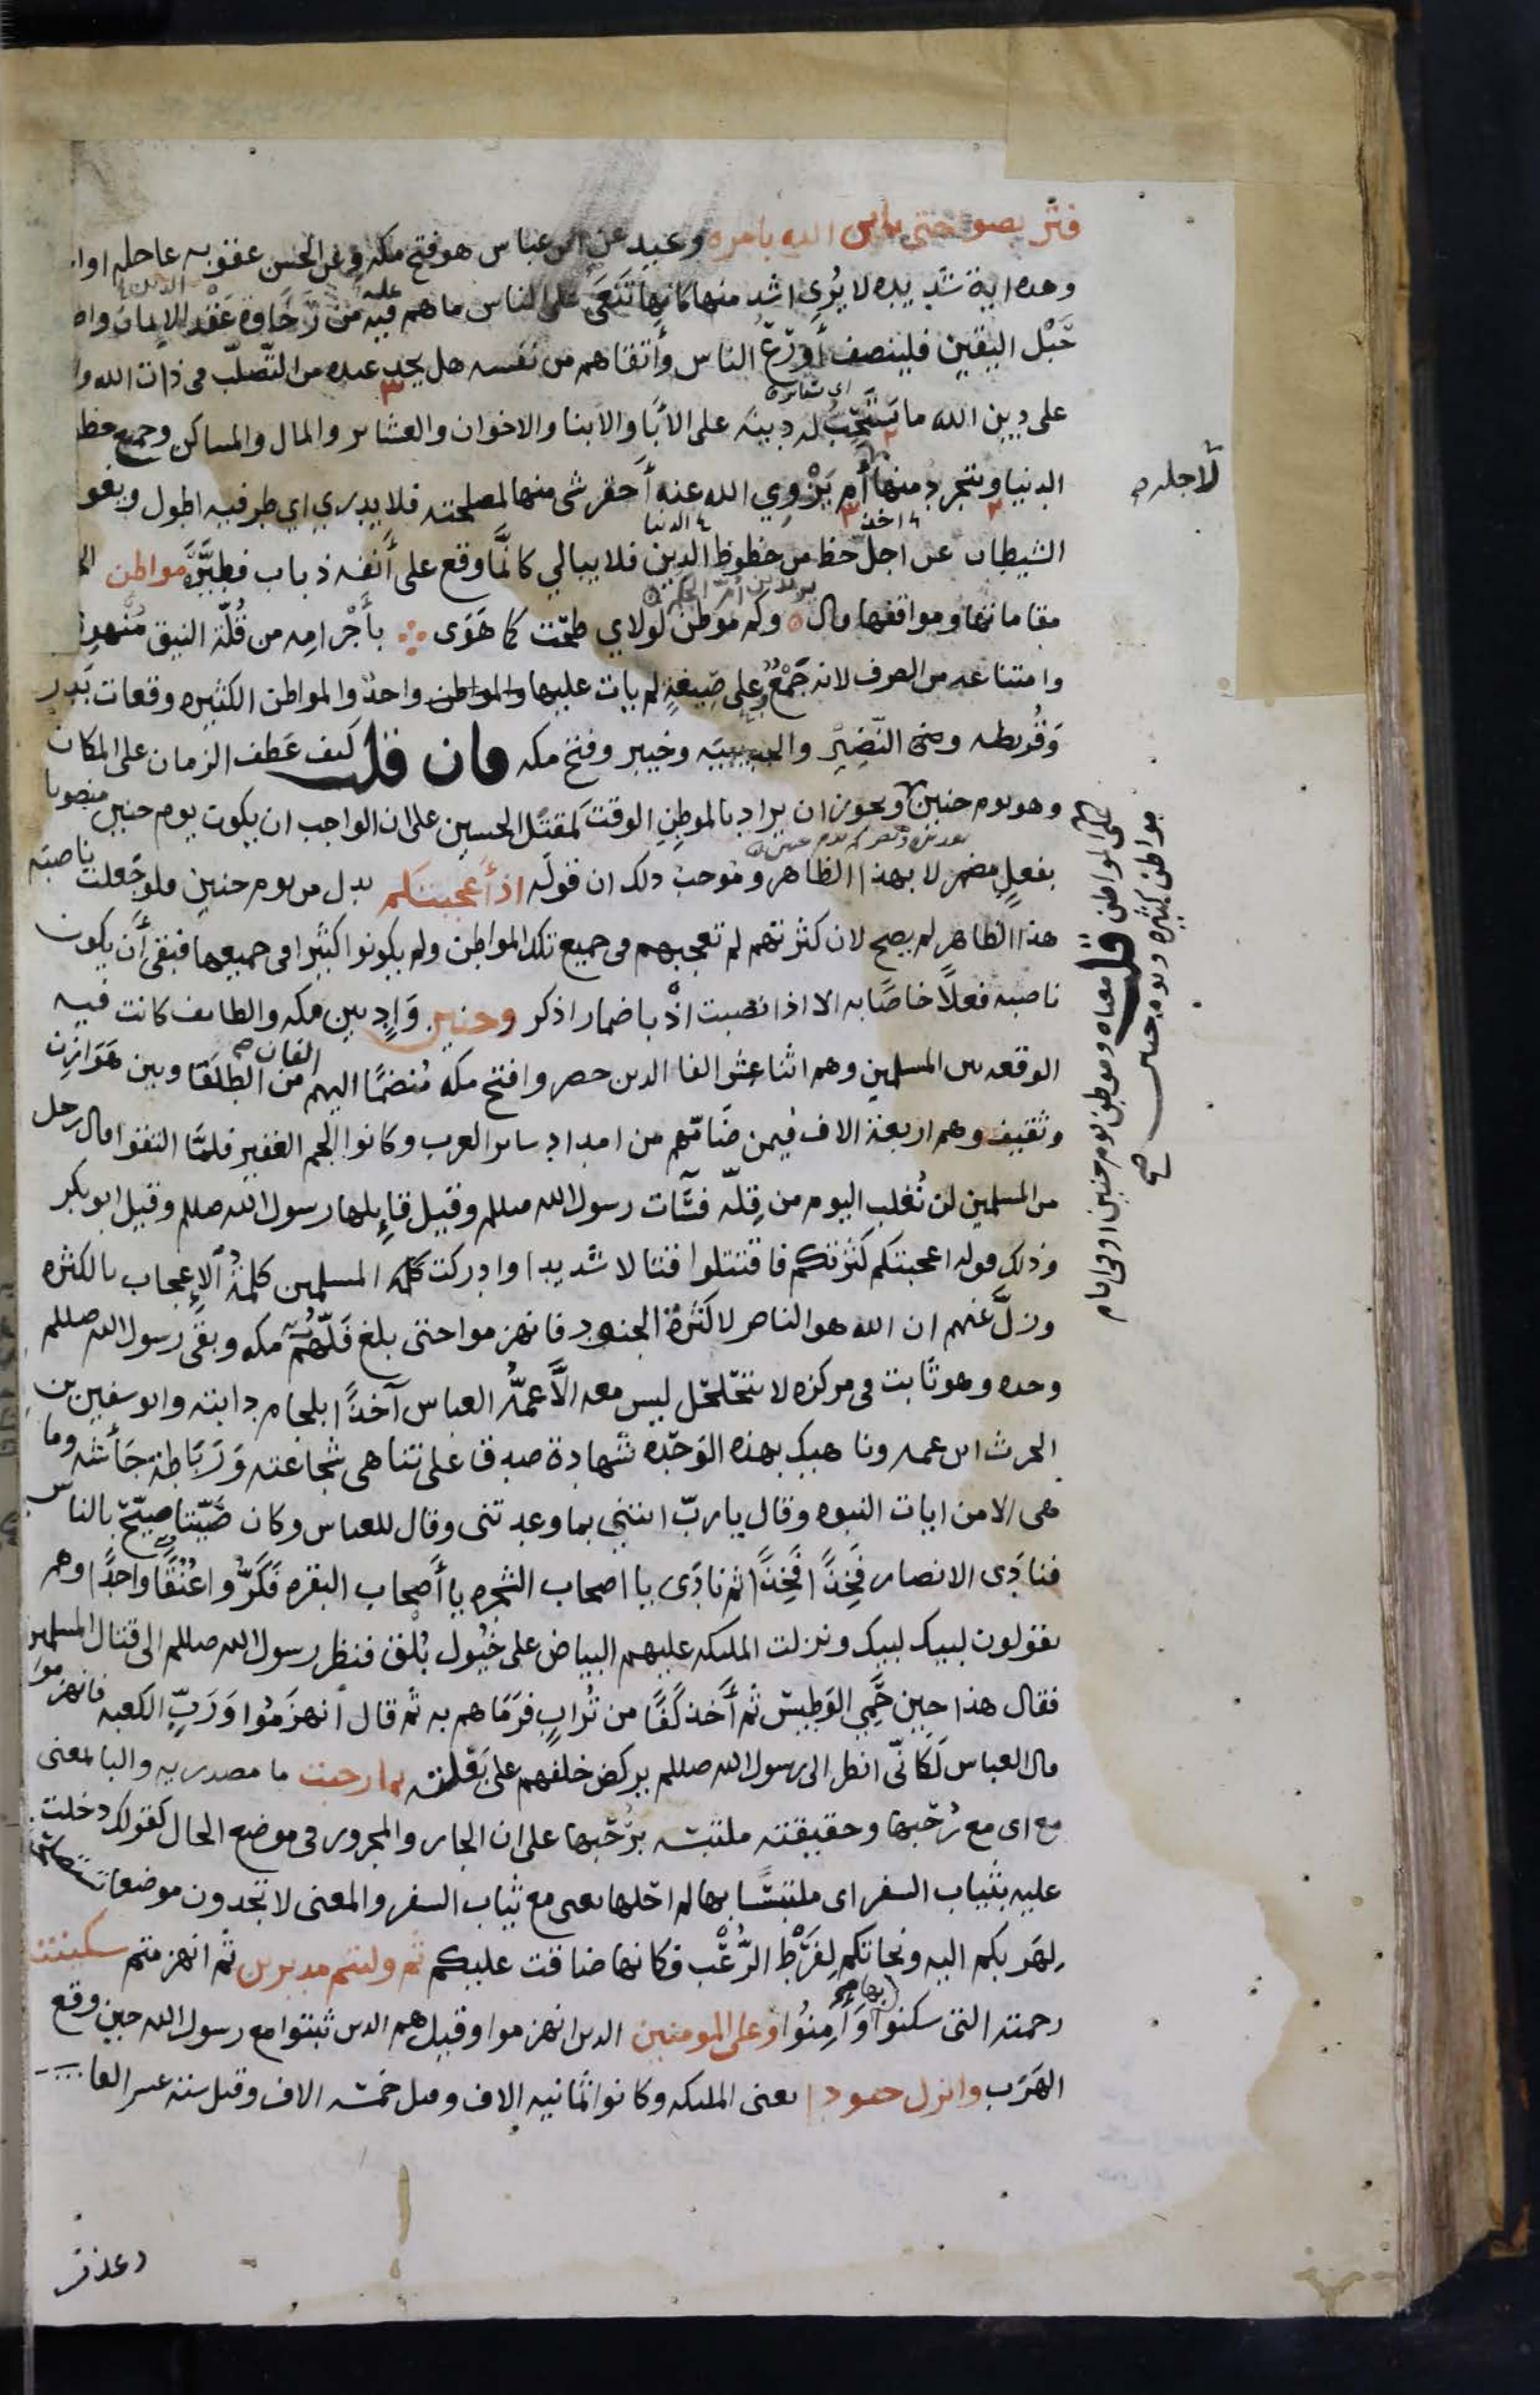 فتربصوا حتى ياتى الله بامره وعيد عن ابن عباس هو فتح مكه وعن الحسن عقوبه عاجله او ا
وهده اية شديده لا يُرى اشد منها كانها تَنْعَى على الناس ما هم عليه من رَخَاوة عَقْد الايمان واض
حَبْل اليقين فلينصف أَوْرَعُ الناس وأتقاهم من نفسه هل يجد عنده من التّصلّب فى ذات الله وا
على دين الله ما يستحبّ له دينه على الأبا والابنا والاخوان والعشاير والمال والمساكن وجميع حظ
الدنيا ويتجرد منها أم يَزْوِي الله عنه أحقر شى منها لمصلحته فلا يدري اي طرفيه اطول ويغو
الشيطان عن اجل حظ من حظوظ الدين فلا يبالي كانّما وقع على أنفه ذباب فطيّره مواطن الح
مقاماتها ومواقفها قال وكم موطن لولاي طحت كما هَوَى بأجْرامِه من قُلّة النيق مُنهوِي
وامتناعه من الصرف لانه جَمْعٌ وعلى صِيغةٍ لم يات عليها واحدٌ والمواطن الكثيره وقعات بَدر
وَقُريظه والنّضِيرِ والحديبيَه وخيبر وفتح مكه فان قلت كيف عَطف الزمان على المكان
وهو يوم حنين ويجوز ان يراد بالموطِنِ الوقت كمقتَل الحسين على ان الواجب ان يكون يوم حنين منصوبا
بفعلٍ مضمر لا بهذا الظاهر وموجب ذلك ان قولَه اذ أعجبتكم بدل من يوم حنين فلو جَعلت ناصبَه
هذا الظاهر لم يصح لان كثرتهم لم تعجبهم فى جميع تلك المواطن ولم يكونوا كثيرا فى جميعها فبقى أن يكون
ناصبه فعلاً خاصًا به الا اذا نصبت اذْ باضمار اذكر وحنين وَادٍ بين مكه والطايف كانت فيه
الوقعه بين المسلمين وهم اثنا عشر الفا الذين حضروا فتح مكه مُنضمًا اليهم الفان من الطلَقا وبين هَوَازن
وثقيف وهم اربعة الاف فيمن ضَامّهم من امداد ساير العرب وكانوا الجم الغفير فلمّا التقوا قال رجل
من المسلمين لن نُغلب اليوم من قِلّه فسَآت رسول الله صللم وقيل قايلها رسول الله صللم وقيل ابو بكر
وذلك قوله اعجبتكم كثرتكم فاقتتلوا قتالا شديدا وادركت المسلمين كلمةُ الإعجاب بالكثره
وزلَّ عنهم ان الله هو الناصر لا كثرة الجنود فانهزموا حتى بلغ فَلّهُم مكه وبقى رسول الله صللم
وحده وهو ثابت فى مركزه لا يتحَلحَل ليس معه الّا عمُّه العباس آخذًا بلجام دابته وابو سفين بن
الحرث ابن عمه وناهيك بهذه الوَحْده شهادة صدق على تناهى شجاعته وَرَبَاطة جَأشه وما
هى الا من ايات النبوه وقال يا ربّ ائتني بما وعدتنى وقال للعباس وكان صَيّتا صَيّح بالناس
فنادَى الانصار فَخِذًا فَخِذًا ثم نادَى يا اصحاب الشجره يا أصحاب البقره فَكَرُّوا عُنُقًا واحدًا وهم
يقولون لبيك لبيك ونزلت المليكه عليهم البياض على خُيُول بُلْق فنظر رسول الله صللم الى قتال المسلمين
فقال هذا حين حَمِي الوَطيس ثم أَخذ كَفًا من تُرابٍ فرَمَاهم به ثم قال أنهزَمُوا وَرَبِّ الكعبه فانهزموا
قال العباس لَكَانّى انظر الى رسول الله صللم يركض خلفهم على بَغلته بما رحبت ما مصدريه والبا بمعنى
مع اى مع رُحْبها وحقيقته ملتبسه برُحْبها على ان الجار والمجرور فى موضع الحال كقولك دخلت
عليه بثياب السفر اى ملتبسًا بها لم احُلها بعنى مع ثياب السفر والمعنى لا تجدون موضعا تستصلحونه
لِهَرَبكم اليه ونجاتكم لِفَرْط الرُّعْب فكانها ضاقت عليكم ثم وليتم مدبرين ثم انهزمتم سكينته
رحمته التى سكنوا بها وَأَمِنُوا وعلى المومنين الذين انهزموا وقيل هم الذين ثبتوا مع رسول الله حين وقع
الهَرَب وانزل جنودا يعنى المليكه وكانوا ثمانيه الاف وقيل خمسه الاف وقيل سته عشر الفا
وعذب
لاجله
على المواطن قلت معناه وموطن يوم حنين او فى ايام
مواطن كثيره ويوم حنين صح